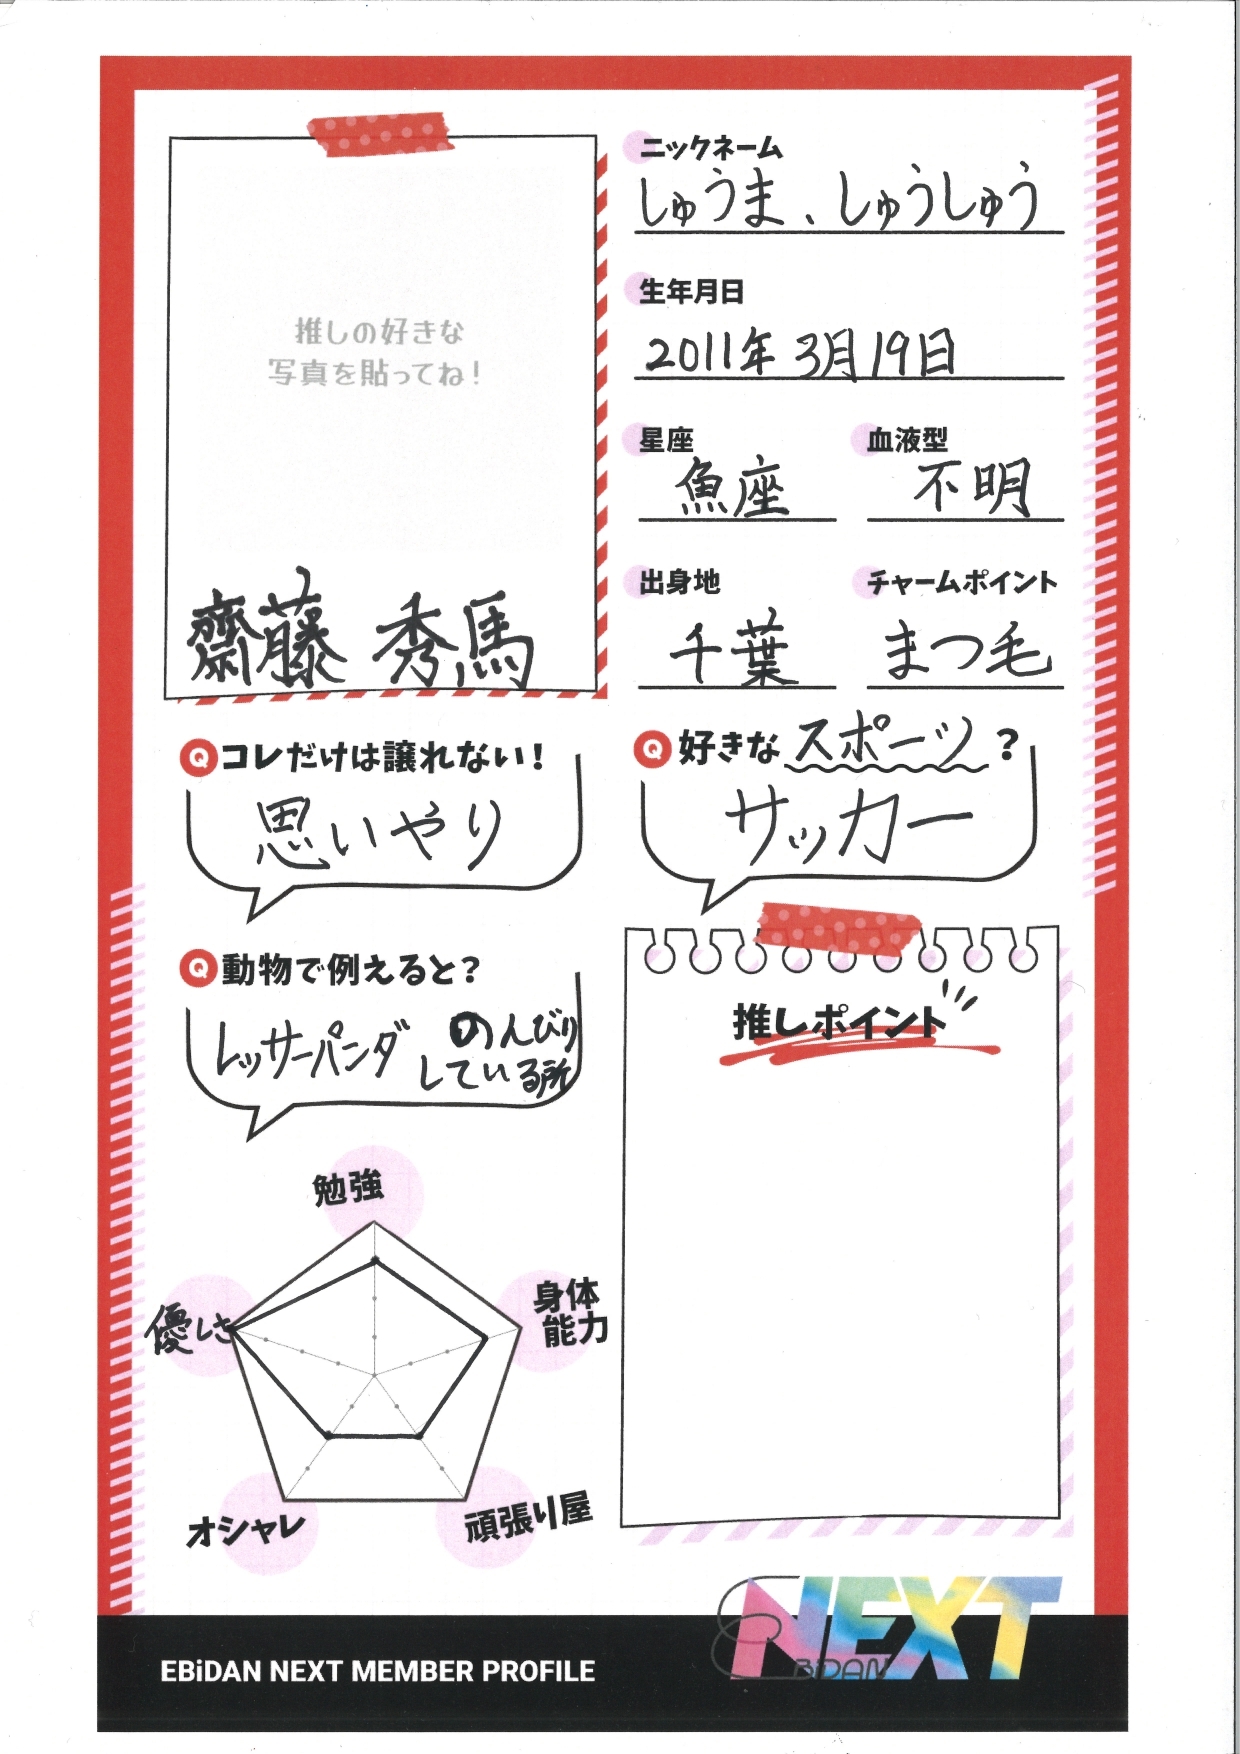 推しの好きな
写真を貼ってね！
齋藤 秀馬
ニックネーム
しゅうま、しゅうしゅう
生年月日
2011年 3月19日
星座
魚座
血液型
不明
出身地
千葉
チャームポイント
まつ毛
Q コレだけは譲れない！
思いやり
Q 好きなスポーツ？
サッカー
Q 動物で例えると？
レッサーパンダ のんびり
している所
推しポイント
勉強
身体
能力
頑張り屋
オシャレ
優しさ
EBiDAN NEXT MEMBER PROFILE
EBiDAN NEXT